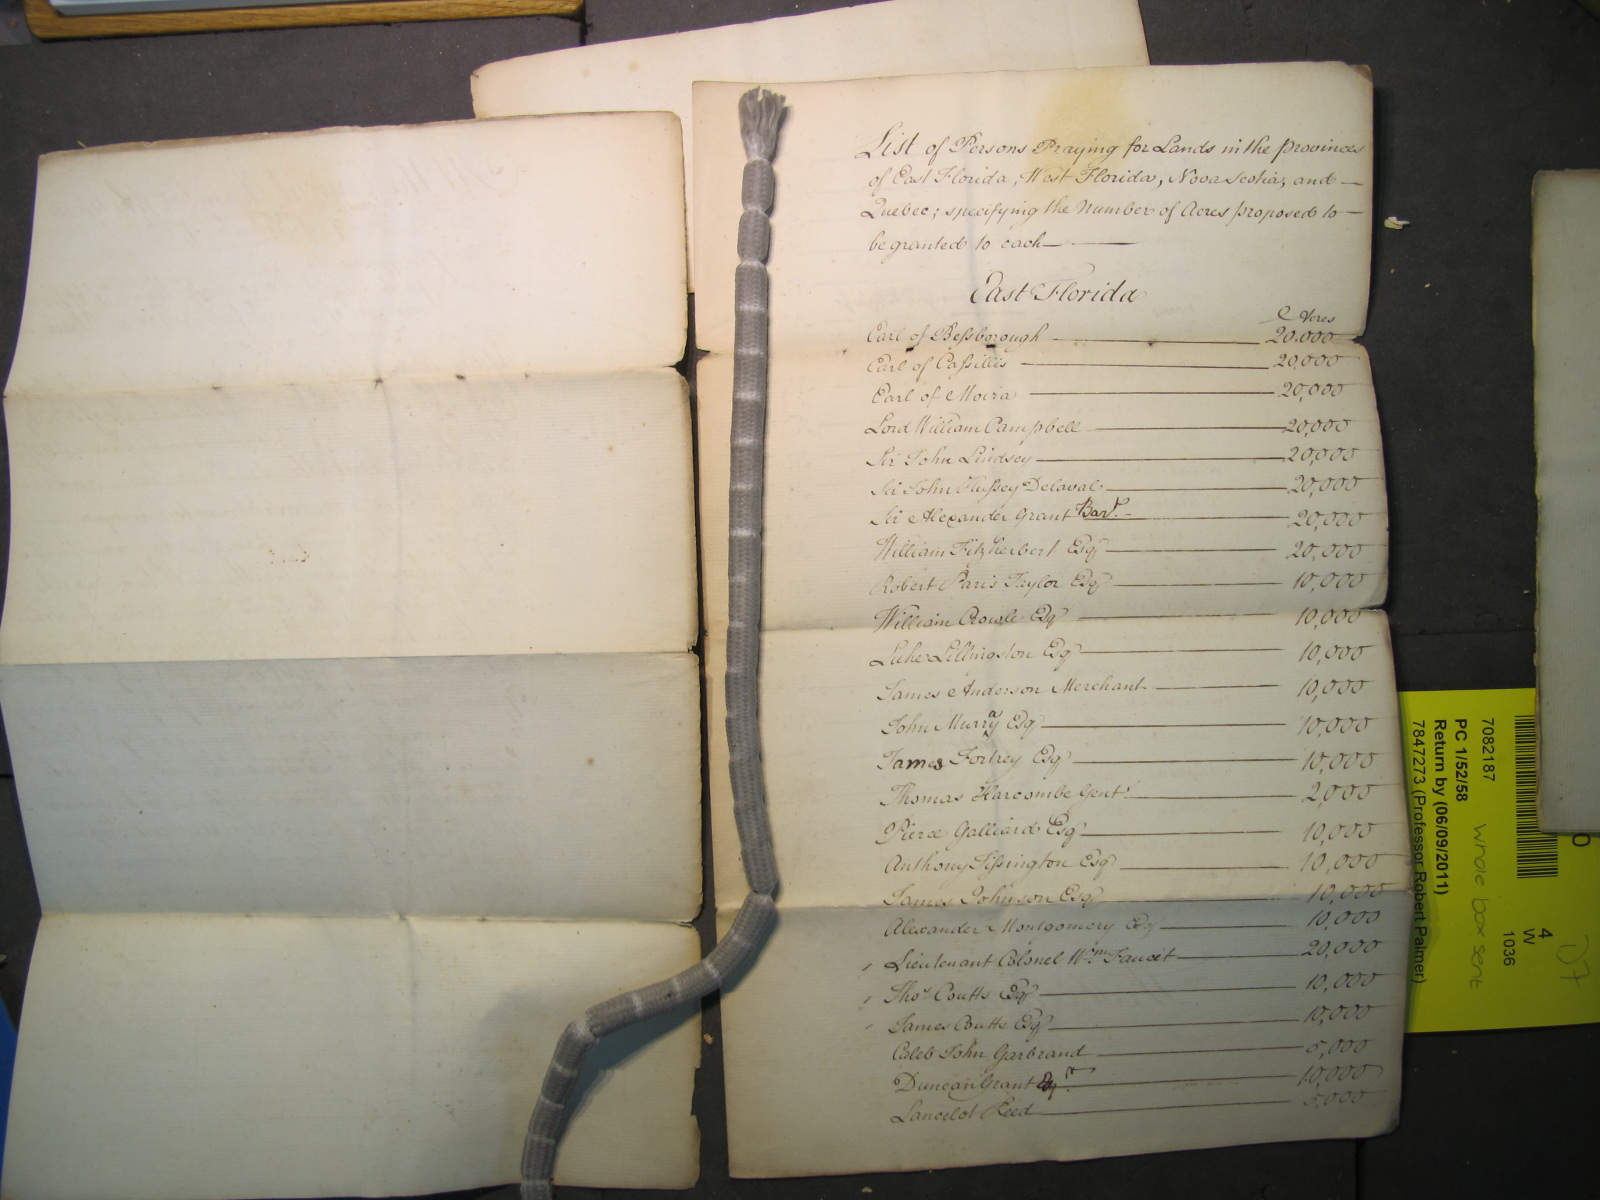 List of Persons Praying for Lands in the provinces
of East Florida, West Florida, Nova Scotia, and —
Quebec; specifying the Number of Acres proposed to —
be granted to each — —
East Florida
Acres
Earl of Bessborough — 20,000
Earl of Cassillis — 20,000
Earl of Moira — 20,000
Lord William Campbell — 20,000
Sir John Lindsey — 20,000
Sir John Hussey Delaval — 20,000
Sir Alexander Grant Bart. — 20,000
William Fitzherbert Esqr — 20,000
Robert Paris Taylor Esqr — 10,000
William Rowle Esqr — 10,000
Luke Lillingston Esqr — 10,000
James Anderson Merchant — 10,000
John Murray Esqr — 10,000
James Fortrey Esqr — 10,000
Thomas Harcombe Gent — 2,000
Pierce Galliard Esqr — 10,000
Anthony Tissington Esqr — 10,000
James Johnson Esqr — 10,000
Alexander Montgomery Esqr — 10,000
Lieutenant Colonel Wm. Faucit — 20,000
Thos Coutts Esqr — 10,000
James Coutts Esqr — 10,000
Caleb John Garbrand — 5,000
Duncan Grant — 10,000
Lancelot Reed — 5,000
7082187
PC 1/52/58
Return by (06/09/2011)
7847273 (Professor Robert Palmer)
whole box sent
4
W
1036